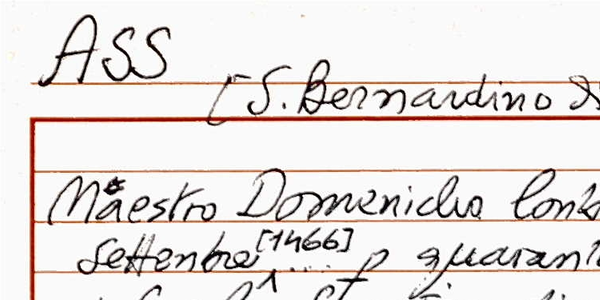 ASS
[S. Bernardino
Maestro Domenicho
Settenbre [1466] ... p quarant